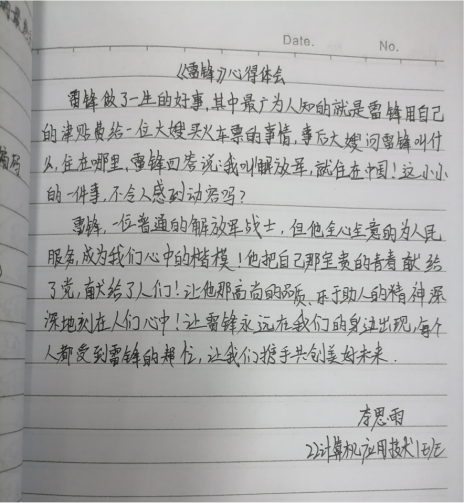 Date.    No.
《雷锋》心得体会
雷锋做了一生的好事，其中最广为人知的就是雷锋用自己
的津贴费给一位大嫂买火车票的事情，事后大嫂问雷锋叫什
么，住在哪里，雷锋回答说：我叫解放军，就住在中国！这小小
的一件事，不令人感到动容吗？
雷锋，一位普通的解放军战士，但他全心全意的为人民
服务，成为我们心中的楷模！他把自己那宝贵的青春献给
了党，献给了人们！让他那高尚的品质、乐于助人的精神深
深地刻在人们心中！让雷锋永远在我们的身边出现，每个
人都受到雷锋的
让我们携手共创美好未来.
李思雨
计算机应用技术